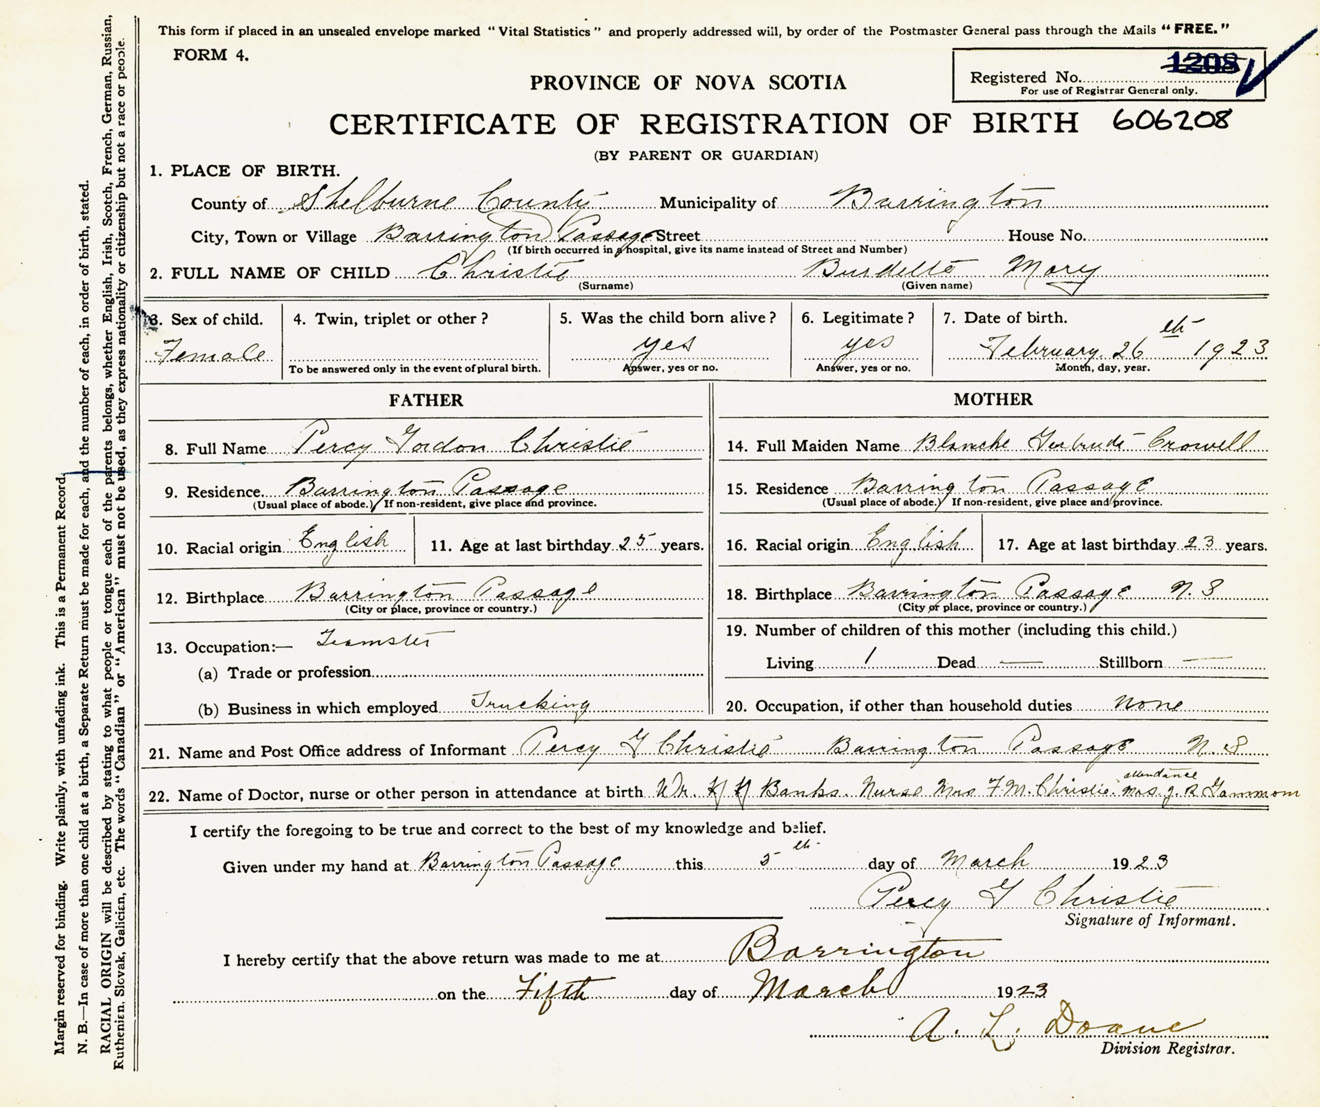 This form if placed in an unsealed envelope marked "Vital Statistics" and properly addressed will, by order of the Postmaster General pass through the Mails "FREE."
FORM 4.
1208
Registered No.
For use of Registrar General only.
PROVINCE OF NOVA SCOTIA
CERTIFICATE OF REGISTRATION OF BIRTH 606208
(BY PARENT OR GUARDIAN)
1. PLACE OF BIRTH.
County of Shelburne County Municipality of Barrington
City, Town or Village Barrington Passage Street House No.
(If birth occurred in a hospital, give its name instead of Street and Number)
2. FULL NAME OF CHILD Christie Burdette Mary
(Surname) (Given name)
3. Sex of child. 4. Twin, triplet or other? 5. Was the child born alive? 6. Legitimate? 7. Date of birth.
Female yes yes February 26th 1923
To be answered only in the event of plural birth. Answer, yes or no. Answer, yes or no. Month, day, year.
FATHER MOTHER
8. Full Name Percy Gordon Christie 14. Full Maiden Name Blanche Gertrude Crowell
9. Residence Barrington Passage 15. Residence Barrington Passage
(Usual place of abode. If non-resident, give place and province. (Usual place of abode. If non-resident, give place and province.
10. Racial origin English 11. Age at last birthday 25 years. 16. Racial origin English 17. Age at last birthday 23 years.
12. Birthplace Barrington Passage 18. Birthplace Barrington Passage N.S
(City or place, province or country.) (City or place, province or country.)
13. Occupation:— Teamster 19. Number of children of this mother (including this child.)
(a) Trade or profession Living 1 Dead — Stillborn —
(b) Business in which employed Trucking 20. Occupation, if other than household duties none
21. Name and Post Office address of Informant Percy G Christie Barrington Passage N.S
attendance
22. Name of Doctor, nurse or other person in attendance at birth Banks. Nurse Mrs F.M. Christie. Mrs. J. R Gammom
I certify the foregoing to be true and correct to the best of my knowledge and belief.
Given under my hand at Barrington Passage this 5th day of March 1923
Percy G Christie
Signature of Informant.
I hereby certify that the above return was made to me at Barrington
on the Fifth day of March 1923
A. L. Doane
Division Registrar.
Margin reserved for binding. Write plainly, with unfading ink. This is a Permanent Record.
N. B.—In case of more than one child at a birth, a Separate Return must be made for each, and the number of each, in order of birth, stated.
RACIAL ORIGIN will be described by stating to what people or tongue each of the parents belongs, whether English, Irish, Scotch, French, German, Russian,
Ruthenien, Slovak, Galicien, etc. The words "Canadian" or "American" must not be used, as they express nationality or citizenship but not a race or people.